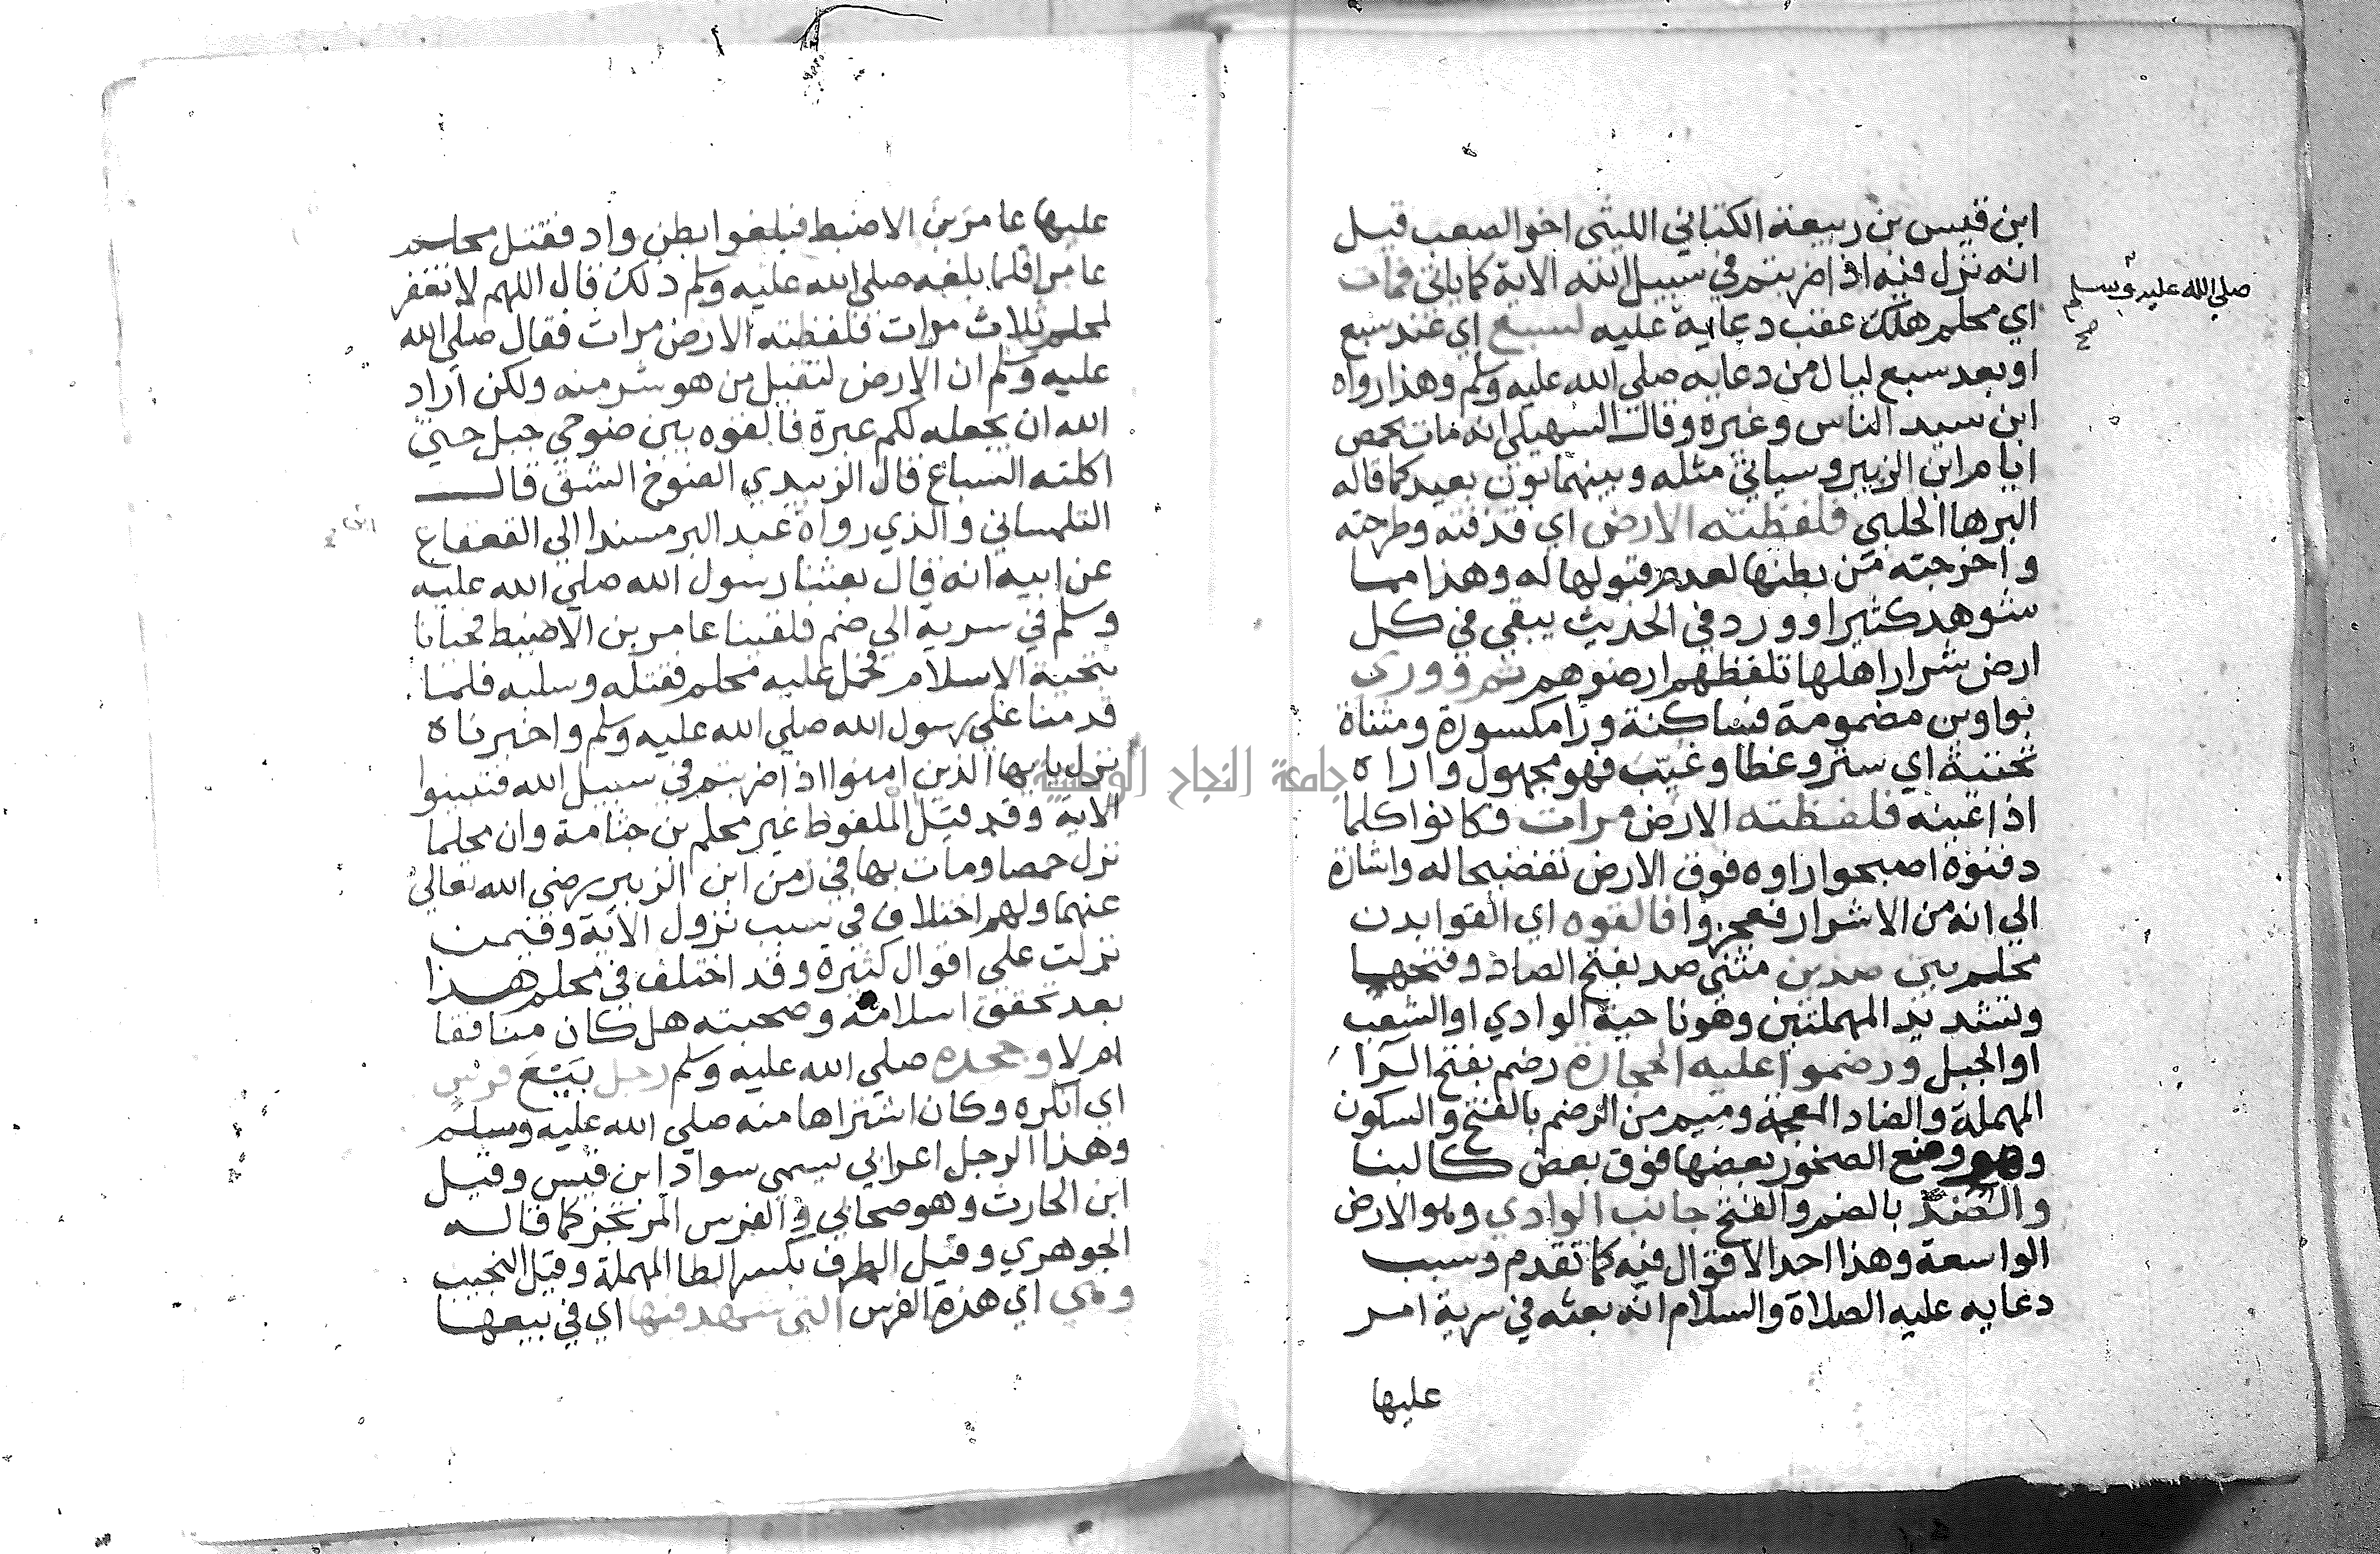 ابن قيس بن ربيعة الكناني الليثي اخو الصعب قيل
انه نزل فيه اذا ضربتم في سبيل الله الاية كما ياتي فمات
صلي الله عليه وسلم
صح
اي محلم هلك عقب دعايه عليه لسبع اي عند سبع
او بعد سبع ليال من دعايه صلي الله عليه وسلم وهذا رواه
ابن سيد الناس وغيره وقال السهيلي انه مات بحمص
ايام ابن الزبير وسياتي مثله وبينهما بون بعيد كما قاله
البرهان الحلبي فلفظته الارض اي قذفته وطرحته
واخرجته من بطنها لعدم قبولها له وهذا مما
شوهد كثيرا وورد في الحديث يبقي في كل
ارض شرار اهلها تلفظهم ارضوهم ثم ووري
بواوين مضمومة فساكنة ورا مكسورة ومثناة
تحتية اي ستر وغطا وغيب فهو مجهول واراه
اذا غيبه فلفظته الارض مرات فكانوا كلما
دفنوه اصبحوا راوه فوق الارض تفضيحا له واشارة
الي انه من الاشرار فعجزوا فالقوه اي القوا بدن
محلم بين صدين مثني صد بفتح الصاد وفتحها
وتشديد المهملتين وهو ناحية الوادي او الشعب
او الجبل ورضموا عليه الحجارة رضم بفتح الرا
المهملة والضاد المعجمة وميم من الرضم بالفتح والسكون
وهو وضع الصخور بعضها فوق بعض كالبنا
والصد بالضم والفتح جانب الوادي وهو الارض
الواسعة وهذا احد الاقوال فيه كما تقدم وسبب
دعايه عليه الصلاة والسلام انه بعثه في سرية امر
عليها
عليها عامر بن الاضبط فبلغوا بطن واد فقتل محلم
عامرا فلما بلغه صلي الله عليه وسلم ذلك قال اللهم لا تغفر
لمحلم ثلاث مرات فلفظته الارض مرات فقال صلي الله
عليه وسلم ان الارض لتقبل من هو شر منه ولكن اراد
الله ان يجعله لكم عبرة فالقوه بين ضوحي جبل حتي
اكلته السباع قال الزبيدي الضوح الشق قال
التلمساني والذي رواه عبد البر مسندا الي القعقاع
ابن
عن ابيه انه قال بعثنا رسول الله صلي الله عليه
وسلم في سرية الي ضم فلقينا عامر بن الاضبط فحيانا
بتحية الاسلام فحمل عليه محلم فقتله وسلبه فلما
قدمنا علي رسول الله صلي الله عليه وسلم واخبرناه
نزل يا ايها الذين امنوا اذا ضربتم في سبيل الله فتبينوا
الاية وقد قيل الملفوظ غير محلم بن جثامة وان محلما
نزل حمصا ومات بها في زمن ابن الزبير رضي الله تعالي
عنهما ولهم اختلاف في سبب نزول الاية وفيمن
نزلت علي اقوال كثيرة وقد اختلف في محلم هذا
بعد تحقق اسلامه وصحبته هل كان منافقا
ام لا وجحده صلي الله عليه وسلم رجل بيع فرس
اي انكره وكان اشتراها منه صلي الله عليه وسلم
وهذا الرجل اعرابي يسمي سواد ابن قيس وقيل
ابن الحارث وهو صحابي والفرس المرتجز كما قاله
الجوهري وقيل الطرف بكسر الطا المهملة وقيل النجيب
وهي اي هذه الفرس التي شهد فيها اي في بيعها
جامعة النجاح الوطنية